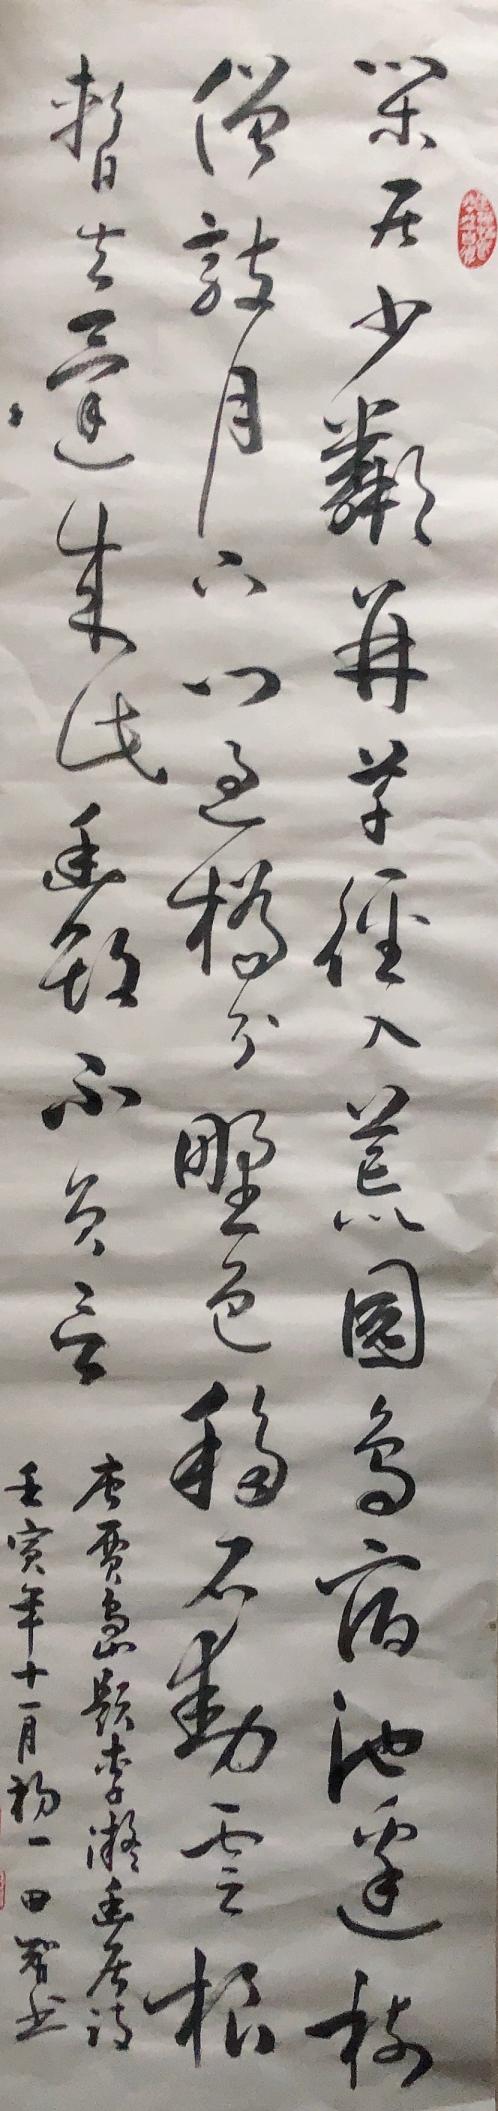 闲居少邻并草径入荒園鸟宿池邊树
僧敲月下门过橋分野色移石動雲根
暫去還来此幽期不负言
唐賈島题李凝幽居诗
壬寅年十一月初一田智书